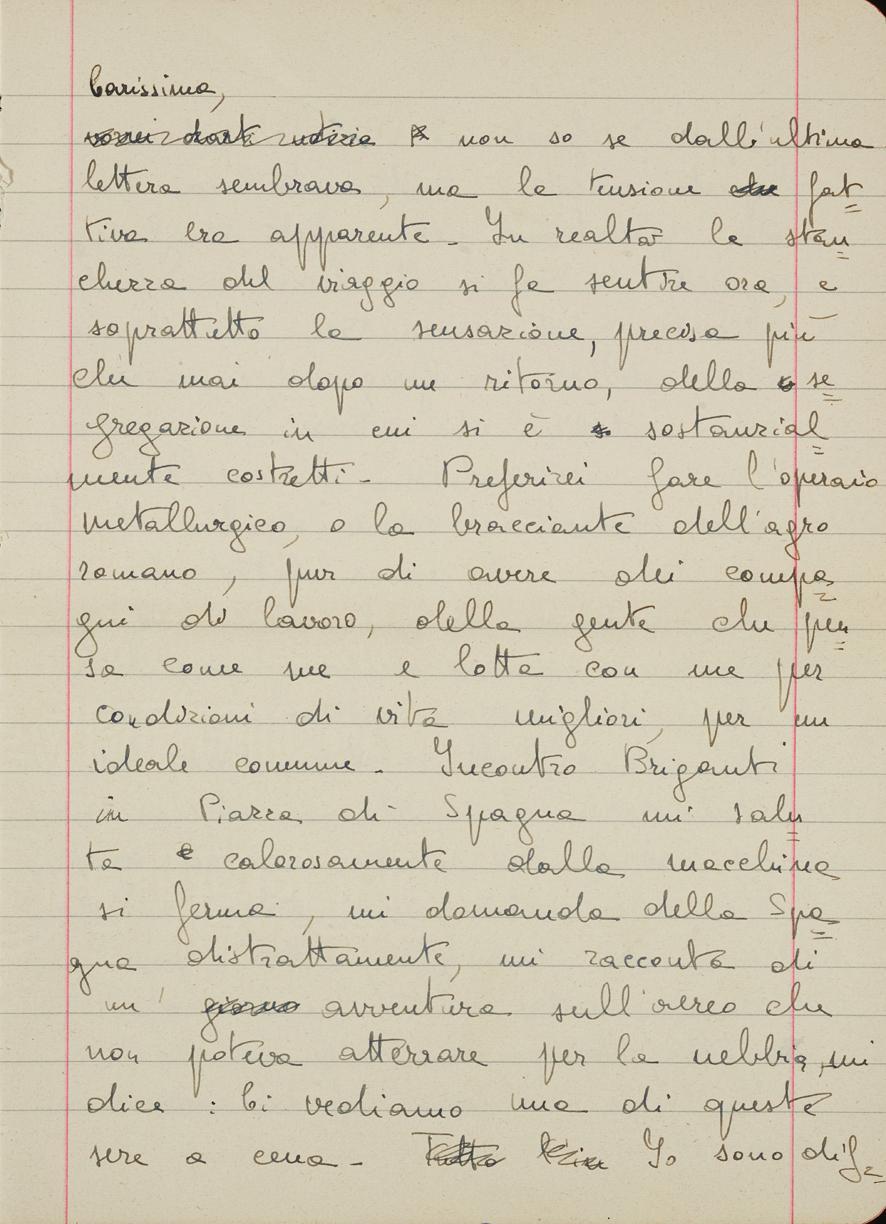 Carissima,
vorrei darti notizie non so se dall'ultima
lettera sembrava, ma la tensione che fat=
tiva era apparente. In realtà la stan=
chezza del viaggio si fa sentire ora, e
soprattutto la sensazione, precisa più
che mai dopo un ritorno, della se=
gregazione in cui si è sostanzial=
mente costretti. Preferirei fare l'operaio
metallurgico, o la bracciante dell'agro
romano, pur di avere dei compa=
gni di lavoro, della gente che pen=
sa come me e lotta con me per
condizioni di vita migliori, per un
ideale comune. Incontro Briganti
in Piazza di Spagna mi salu=
ta calorosamente dalla macchina
si ferma, mi domanda della Spa=
gna distrattamente, mi racconta di
un' giorno avventura sull'aereo che
non poteva atterrare per la nebbia, mi
dice : Ci vediamo una di queste
sere a cena. Tutto Io sono dif=